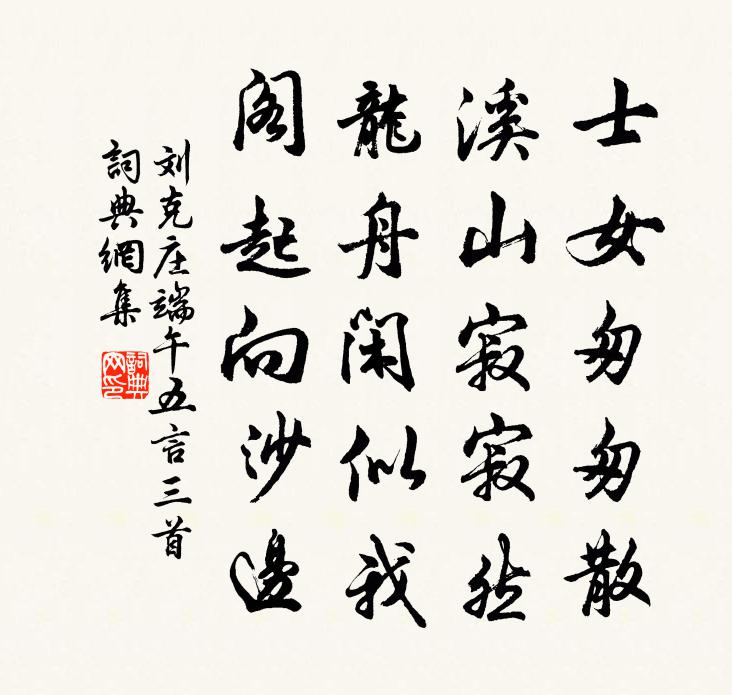 士女匆匆散
溪山寂寂然
龍舟閑似我
阁起向沙邊
刘克庄端午五言三首
詞典網集
詞典网印